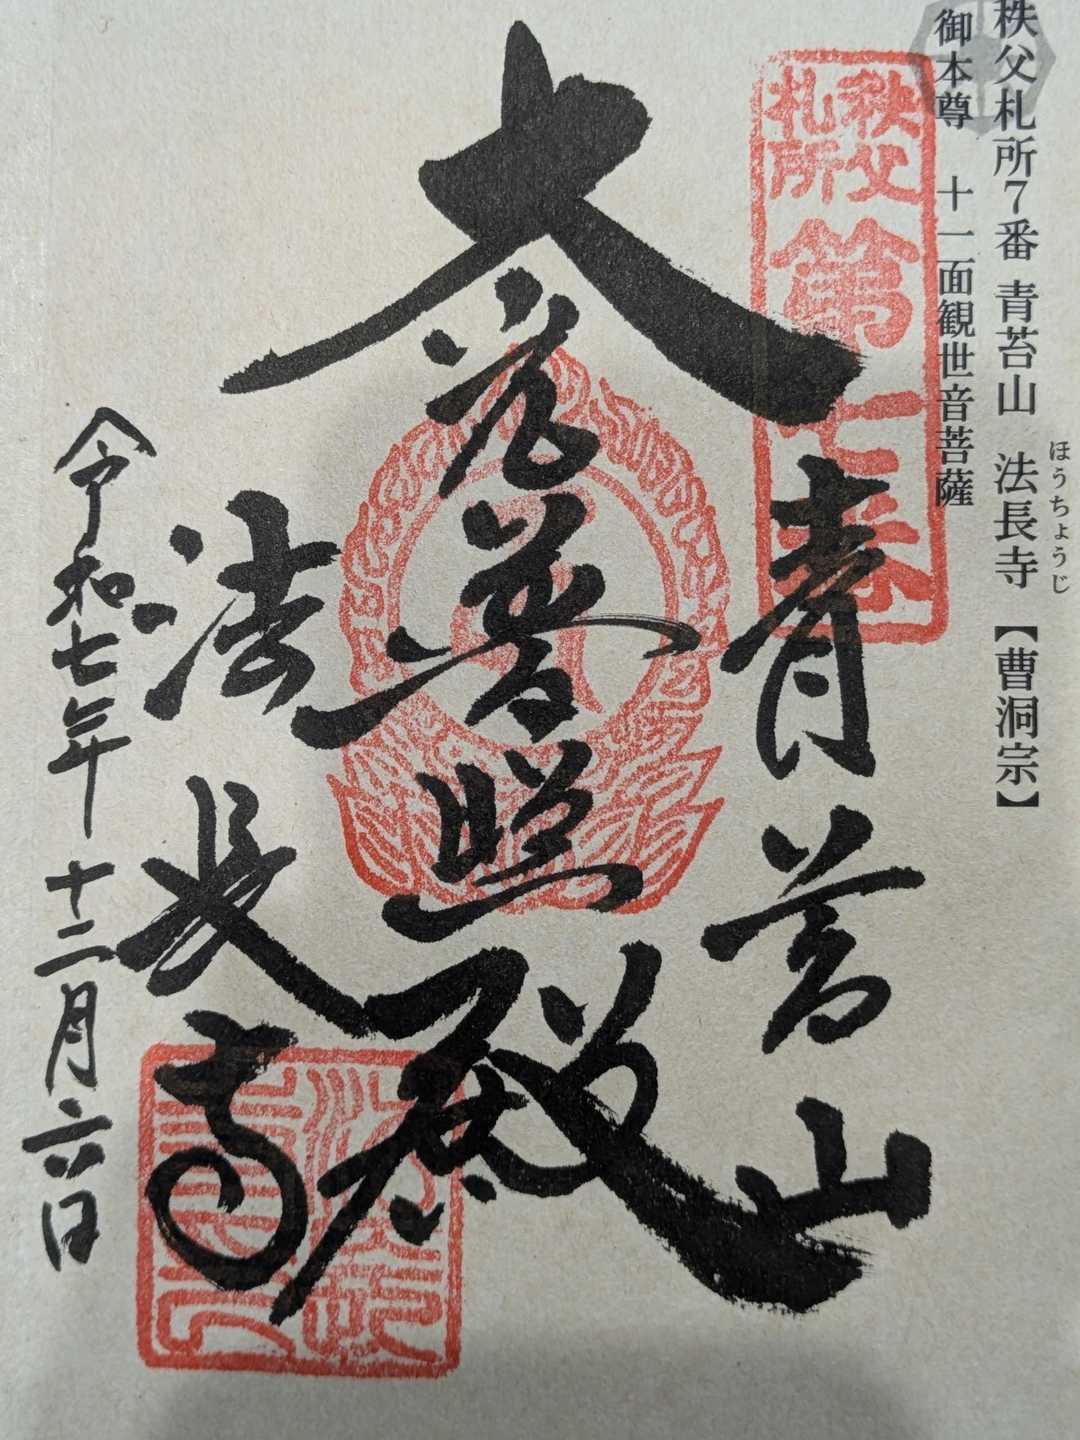 秩父札所7番 青苔山 法長寺 【曹洞宗】
ほうちょうじ
御本尊 十一面観世音菩薩
秩父
札所
第七番
青苔山
大光普照殿
法長寺
令和七年十二月六日